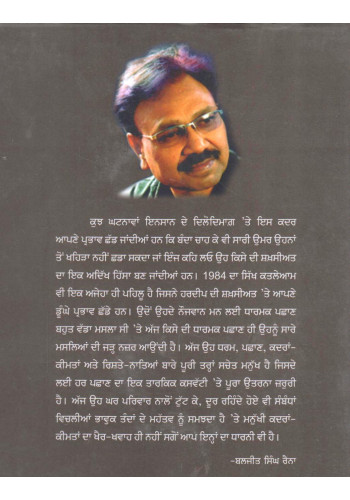 ਕੁਝ ਘਟਨਾਵਾਂ ਇਨਸਾਨ ਦੇ ਦਿਲੋਦਿਮਾਗ 'ਤੇ ਇਸ ਕਦਰ
ਆਪਣੇ ਪ੍ਰਭਾਵ ਛੱਡ ਜਾਂਦੀਆਂ ਹਨ ਕਿ ਬੰਦਾ ਚਾਹ ਕੇ ਵੀ ਸਾਰੀ ਉਮਰ ਉਹਨਾਂ
ਤੋਂ ਖਹਿੜਾ ਨਹੀਂ ਛਡਾ ਸਕਦਾ ਜਾਂ ਇੰਜ ਕਹਿ ਲਓ ਉਹ ਕਿਸੇ ਦੀ ਸ਼ਖ਼ਸੀਅਤ
ਦਾ ਇਕ ਅਦਿੱਖ ਹਿੱਸਾ ਬਣ ਜਾਂਦੀਆਂ ਹਨ। 1984 ਦਾ ਸਿੱਖ ਕਤਲੇਆਮ
ਵੀ ਇਕ ਅਜੇਹਾ ਹੀ ਪਹਿਲੂ ਹੈ ਜਿਸਨੇ ਹਰਦੀਪ ਦੀ ਸ਼ਖ਼ਸੀਅਤ 'ਤੇ ਆਪਣੇ
ਡੂੰਘੇ ਪ੍ਰਭਾਵ ਛੱਡੇ ਹਨ। ਉਦੋਂ ਉਹਦੇ ਨੌਜਵਾਨ ਮਨ ਲਈ ਧਾਰਮਕ ਪਛਾਣ
ਬਹੁਤ ਵੱਡਾ ਮਸਲਾ ਸੀ 'ਤੇ ਅੱਜ ਕਿਸੇ ਦੀ ਧਾਰਮਕ ਪਛਾਣ ਹੀ ਉਹਨੂੰ ਸਾਰੇ
ਮਸਲਿਆਂ ਦੀ ਜੜ੍ਹ ਨਜ਼ਰ ਆਉਂਦੀ ਹੈ। ਅੱਜ ਉਹ ਧਰਮ, ਪਛਾਣ, ਕਦਰਾਂ-
ਕੀਮਤਾਂ ਅਤੇ ਰਿਸ਼ਤੇ-ਨਾਤਿਆਂ ਬਾਰੇ ਪੂਰੀ ਤਰ੍ਹਾਂ ਸਚੇਤ ਮਨੁੱਖ ਹੈ ਜਿਸਦੇ
ਲਈ ਹਰ ਪਛਾਣ ਦਾ ਇਕ ਤਾਰਕਿਕ ਕਸਵੱਟੀ 'ਤੇ ਪੂਰਾ ਉਤਰਨਾ ਜ਼ਰੂਰੀ
ਹੈ। ਅੱਜ ਉਹ ਘਰ ਪਰਿਵਾਰ ਨਾਲੋਂ ਟੁੱਟ ਕੇ, ਦੂਰ ਰਹਿੰਦੇ ਹੋਏ ਵੀ ਸੰਬੰਧਾਂ
ਵਿਚਲੀਆਂ ਭਾਵੁਕ ਤੰਦਾਂ ਦੇ ਮਹੱਤਵ ਨੂੰ ਸਮਝਦਾ ਹੈ 'ਤੇ ਮਨੁੱਖੀ ਕਦਰਾਂ-
ਕੀਮਤਾਂ ਦਾ ਖ਼ੈਰ-ਖਵਾਹ ਹੀ ਨਹੀਂ ਸਗੋਂ ਆਪ ਇਨ੍ਹਾਂ ਦਾ ਧਾਰਨੀ ਵੀ ਹੈ।
-ਬਲਜੀਤ ਸਿੰਘ ਰੈਨਾ